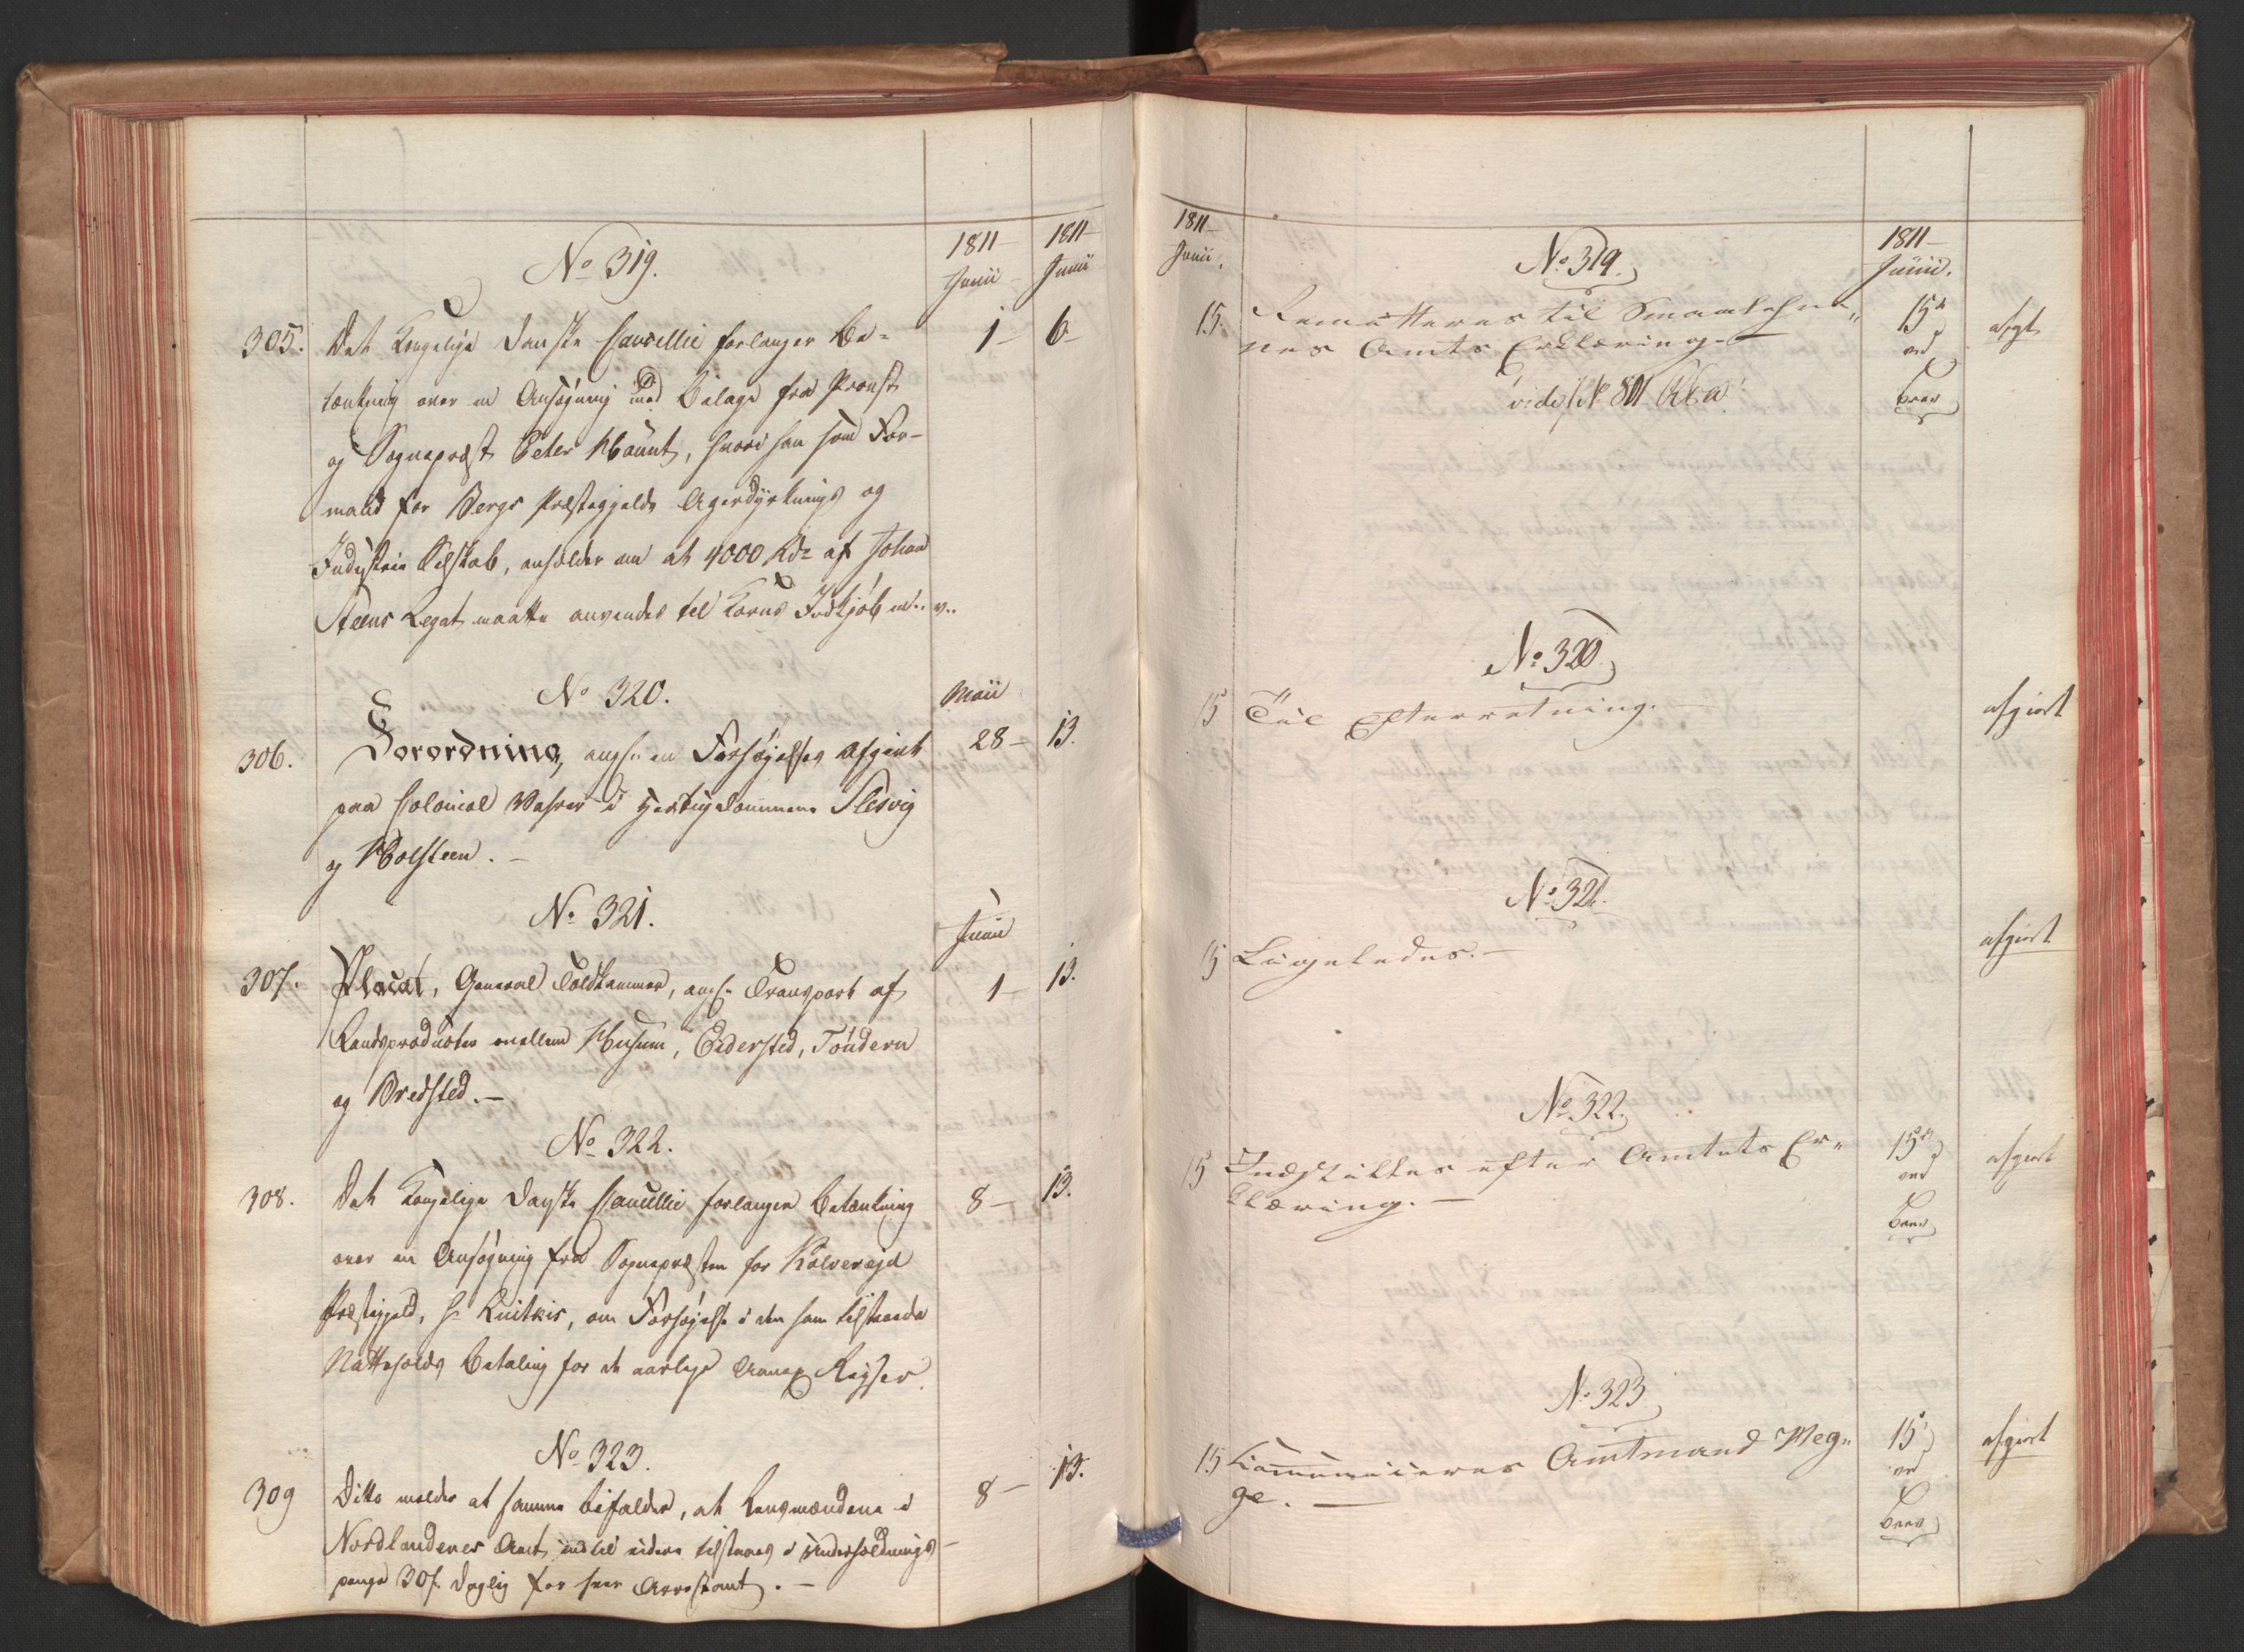 No 319.
1811
Junii
1811
Junii
305. Det Kongelige Danske Cancellie forlanger Be=
tænkning over en Ansøgning med Bilage fra Provst
og Sognepræst Peter Hount, hvori han som For-
mand for Bergs Præstegjelds Agerdyrknings og
Industrie Selskab, anholder om at 4000 Rdr af Johan
Steens Legat maatte anvendes til Korns Indkjøb m. v.
1 - 6 -
No 320.
Maii
306. Forordning, angl. en Forhøjelses Afgivt
paa Colonial Vahrer i Hertugdømmene Slesvig
og Holsteen. -
28 - 13.
No 321.
Junii
307. Placat, General Toldkammer, angl. Transport af
Landsproducter mellem Husum, Eidersted, Tøndern
og Bredsted. -
1 - 13.
No 322.
308. Det Kongelige Danske Cancellie forlanger Betænkning
over en Ansøgning fra Sognepræsten for Kolvereid
Præstegjeld, Hr. om Forhøjelse i den ham tilstaaede
Natteholds Betaling for de aarlige Annex Reyser
8 - 13.
No 323.
309 Ditto melder at samme bifalder, at Lensmændene i
Nordlandenes Amt indtil videre tilstaaes i Underholdnings
penge 30 s. daglig for hver Arrestant. -
8 - 13.
1811
Junii.
No 319.
1811
Junii.
15. Remitteres til Smaalehne,,
nes Amts Erklæring. -
vide No 811
15de
ved
Brev
afgt
No 320.
15 Til Efterretning.
afgjort
No 321.
15 Ligeledes. -
afgjort
No 322.
15 Indstilles efter Amtets Er,,
klæring. -
15de
ved
Brev
afgjort
No 323
15 Kommuniceres Amtmand Heg,,
ge. -
15
ved
Brev
afgjort